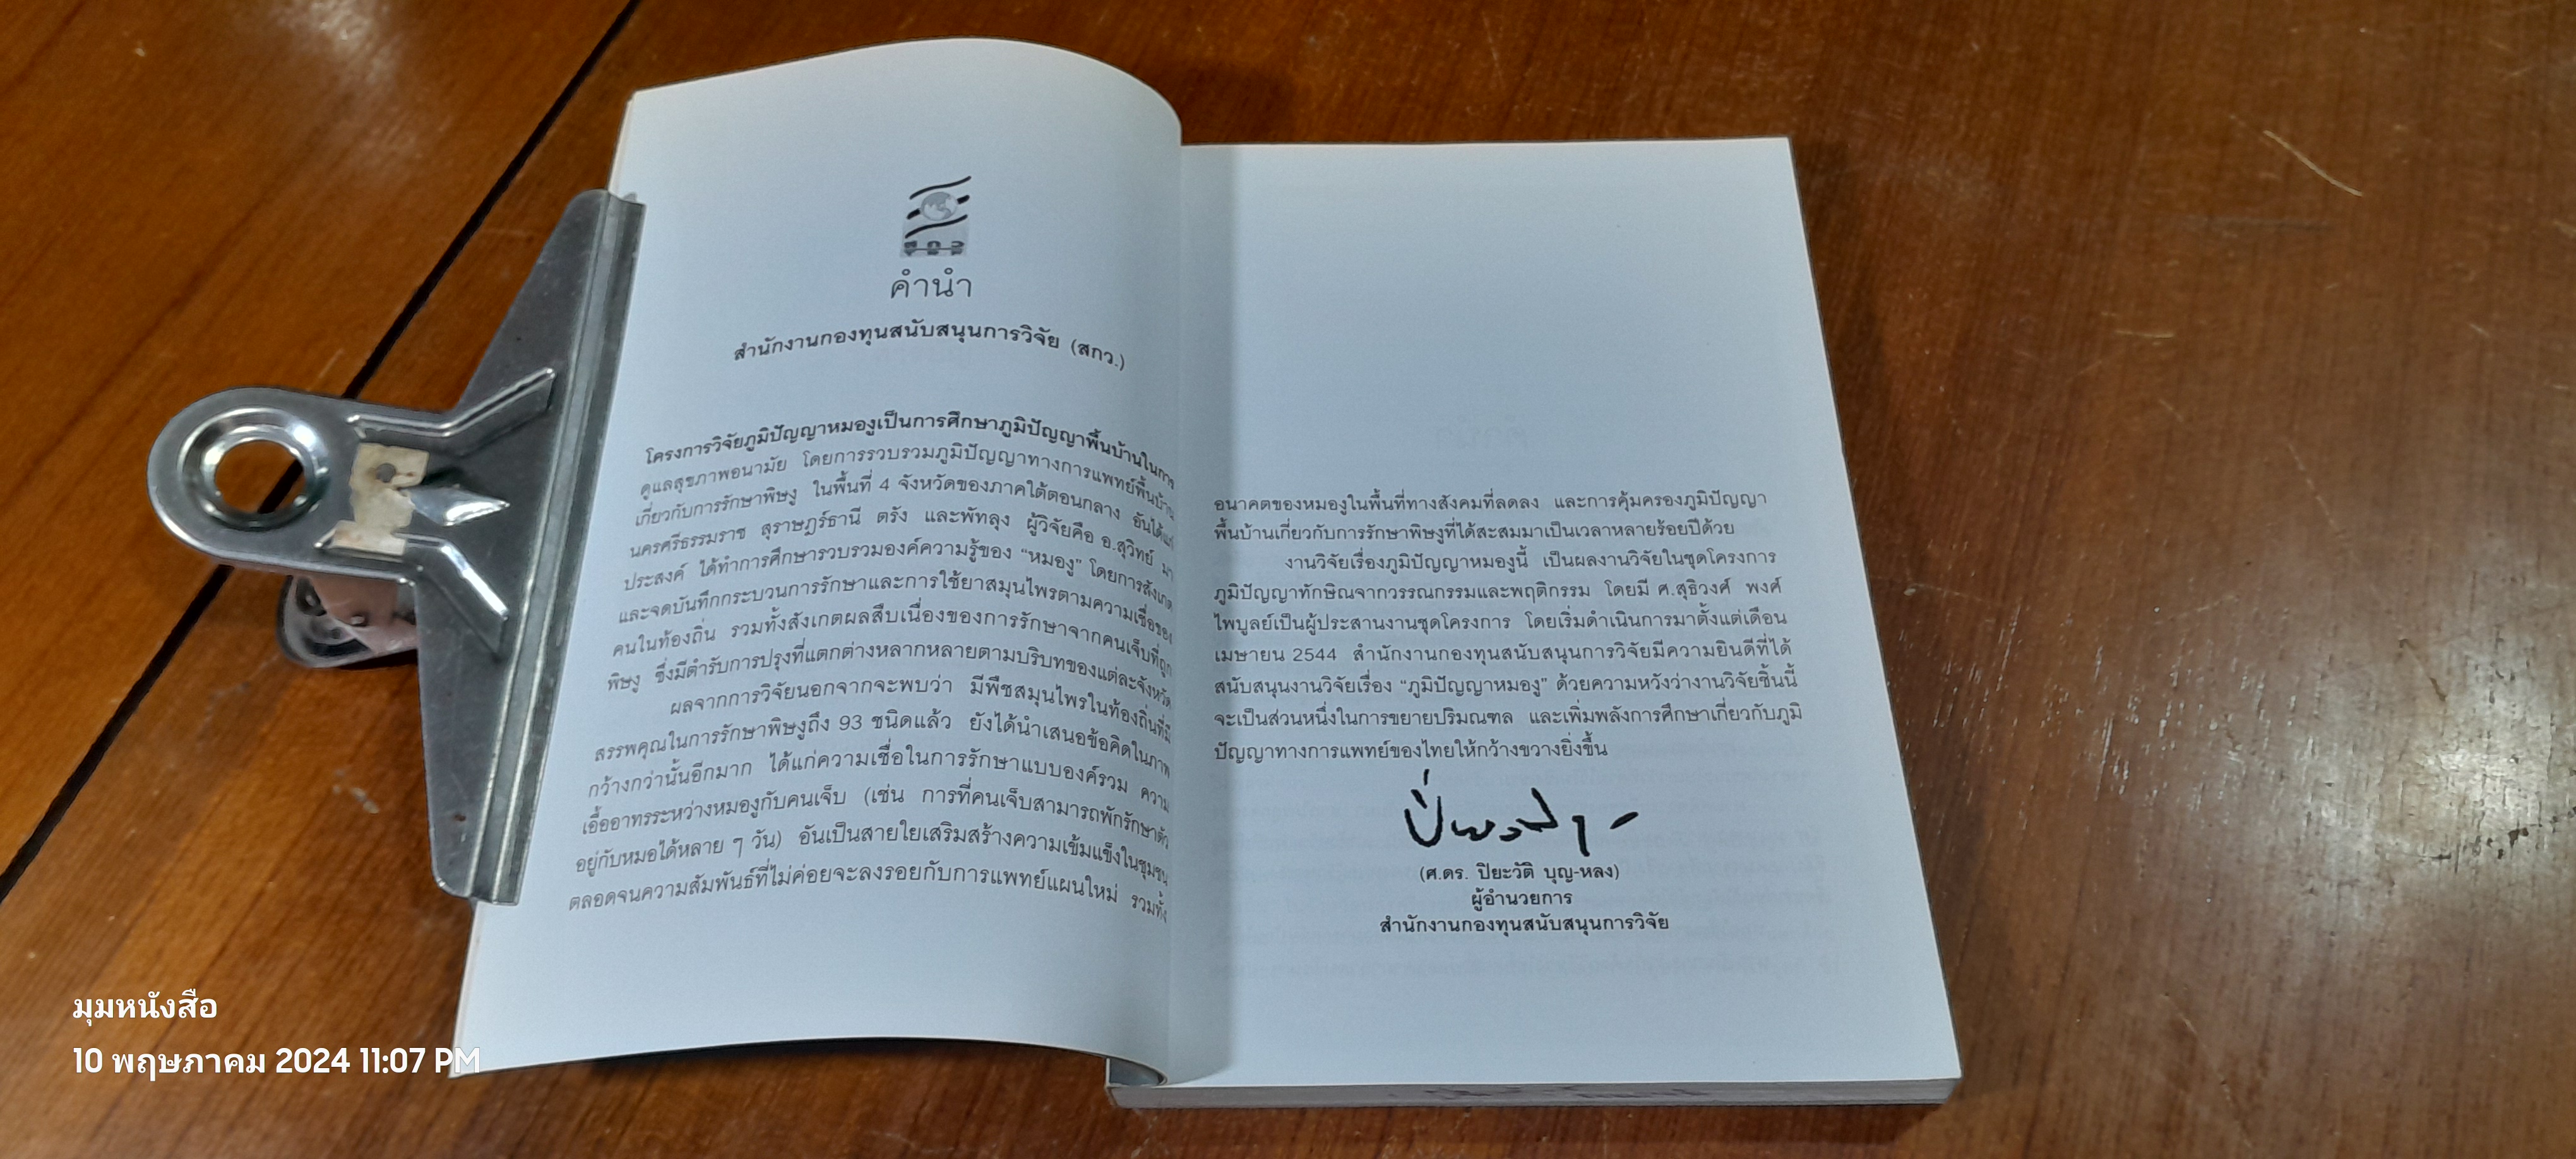 สกว
คำนำ
สำนักงานกองทุนสนับสนุนการวิจัย (สกว.)
โครงการวิจัยภูมิปัญญาหมองูเป็นการศึกษาภูมิปัญญาพื้นบ้านในการ
ดูแลสุขภาพอนามัย โดยการรวบรวมภูมิปัญญาทางการแพทย์พื้นบ้าน
เกี่ยวกับการรักษาพิษงู ในพื้นที่ 4 จังหวัดของภาคใต้ตอนกลาง อันได้แก่
นครศรีธรรมราช สุราษฎร์ธานี ตรัง และพัทลุง ผู้วิจัยคือ อ.สุวิทย์ มา
ประสงค์ ได้ทำการศึกษารวบรวมองค์ความรู้ของ “หมองู” โดยการสังเกต
และจดบันทึกกระบวนการรักษาและการใช้ยาสมุนไพรตามความเชื่อของ
คนในท้องถิ่น รวมทั้งสังเกตผลสืบเนื่องของการรักษาจากคนเจ็บที่ถูก
พิษงู ซึ่งมีตำรับการปรุงที่แตกต่างหลากหลายตามบริบทของแต่ละจังหวัด
ผลจากการวิจัยนอกจากจะพบว่า มีพืชสมุนไพรในท้องถิ่นที่มี
สรรพคุณในการรักษาพิษงูถึง 93 ชนิดแล้ว ยังได้นำเสนอข้อคิดในภาพ
กว้างกว่านั้นอีกมาก ได้แก่ความเชื่อในการรักษาแบบองค์รวม ความ
เอื้ออาทรระหว่างหมองูกับคนเจ็บ (เช่น การที่คนเจ็บสามารถพักรักษาตัว
อยู่กับหมอได้หลาย ๆ วัน) อันเป็นสายใยเสริมสร้างความเข้มแข็งในชุมชน
ตลอดจนความสัมพันธ์ที่ไม่ค่อยจะลงรอยกับการแพทย์แผนใหม่ รวมทั้ง
อนาคตของหมองูในพื้นที่ทางสังคมที่ลดลง และการคุ้มครองภูมิปัญญา
พื้นบ้านเกี่ยวกับการรักษาพิษงูที่ได้สะสมมาเป็นเวลาหลายร้อยปีด้วย
งานวิจัยเรื่องภูมิปัญญาหมองูนี้ เป็นผลงานวิจัยในชุดโครงการ
ภูมิปัญญาทักษิณจากวรรณกรรมและพฤติกรรม โดยมี ศ.สุธิวงศ์ พงศ์
ไพบูลย์เป็นผู้ประสานงานชุดโครงการ โดยเริ่มดำเนินการมาตั้งแต่เดือน
เมษายน 2544 สำนักงานกองทุนสนับสนุนการวิจัยมีความยินดีที่ได้
สนับสนุนงานวิจัยเรื่อง “ภูมิปัญญาหมองู” ด้วยความหวังว่างานวิจัยชิ้นนี้
จะเป็นส่วนหนึ่งในการขยายปริมณฑล และเพิ่มพลังการศึกษาเกี่ยวกับภูมิ
ปัญญาทางการแพทย์ของไทยให้กว้างขวางยิ่งขึ้น
(ศ.ดร. ปิยะวัติ บุญ-หลง)
ผู้อำนวยการ
สำนักงานกองทุนสนับสนุนการวิจัย
มุมหนังสือ
10 พฤษภาคม 2024 11:07 PM